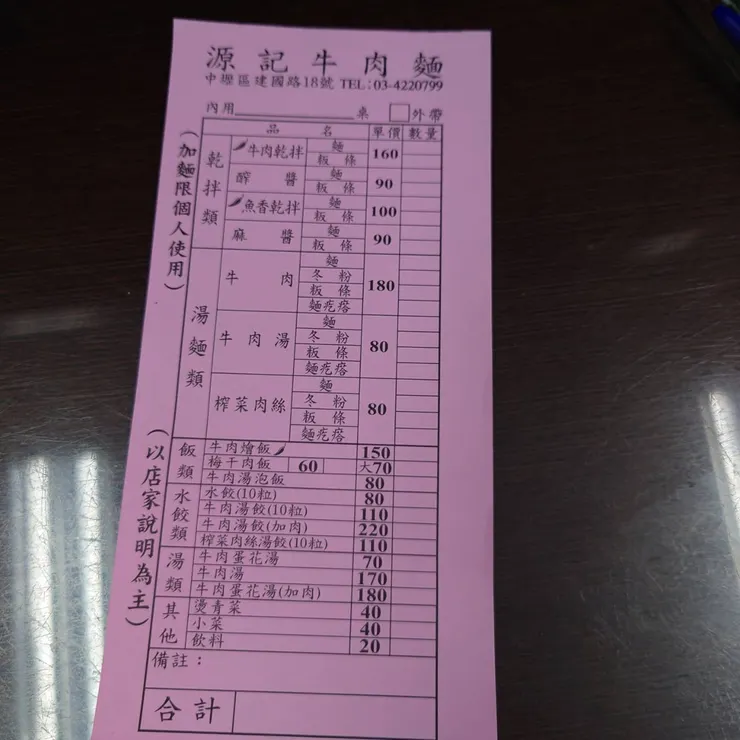 源記牛肉麵
中壢區建國路18號 TEL:03-4220799
內用 桌 外帶
品名 單價 數量
(加麵限個人使用)
(以店家說明為主)
乾拌類
牛肉乾拌 麵 160
粄條
醡醬 麵 90
粄條
魚香乾拌 麵 100
粄條
麻醬 麵 90
粄條
湯麵類
牛肉 麵 180
冬粉
粄條
麵疙瘩
牛肉湯 麵 80
冬粉
粄條
麵疙瘩
榨菜肉絲 麵 80
冬粉
粄條
麵疙瘩
飯類
牛肉燴飯 150
梅干肉飯 60 大70
牛肉湯泡飯 80
水餃類
水餃(10粒) 80
牛肉湯餃(10粒) 110
牛肉湯餃(加肉) 220
榨菜肉絲湯餃(10粒) 110
湯類
牛肉蛋花湯 70
牛肉湯 170
牛肉蛋花湯(加肉) 180
其他
燙青菜 40
小菜 40
飲料 20
備註:
合計